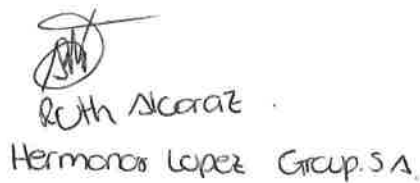 Ruth Alcaraz.
Hermanos Lopez Group. S A.